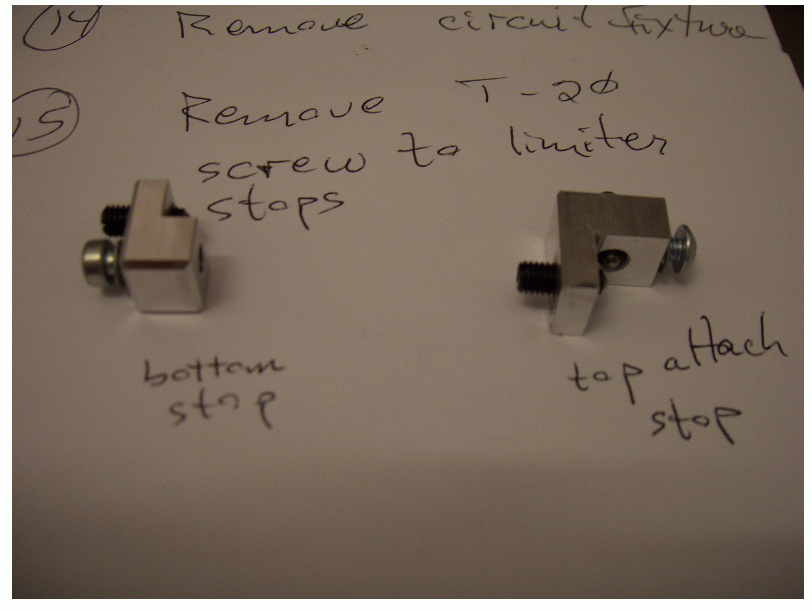 14 Remove circuit fixture
15 Remove T-20
screw to limiter
stops
bottom
stop
top attach
stop